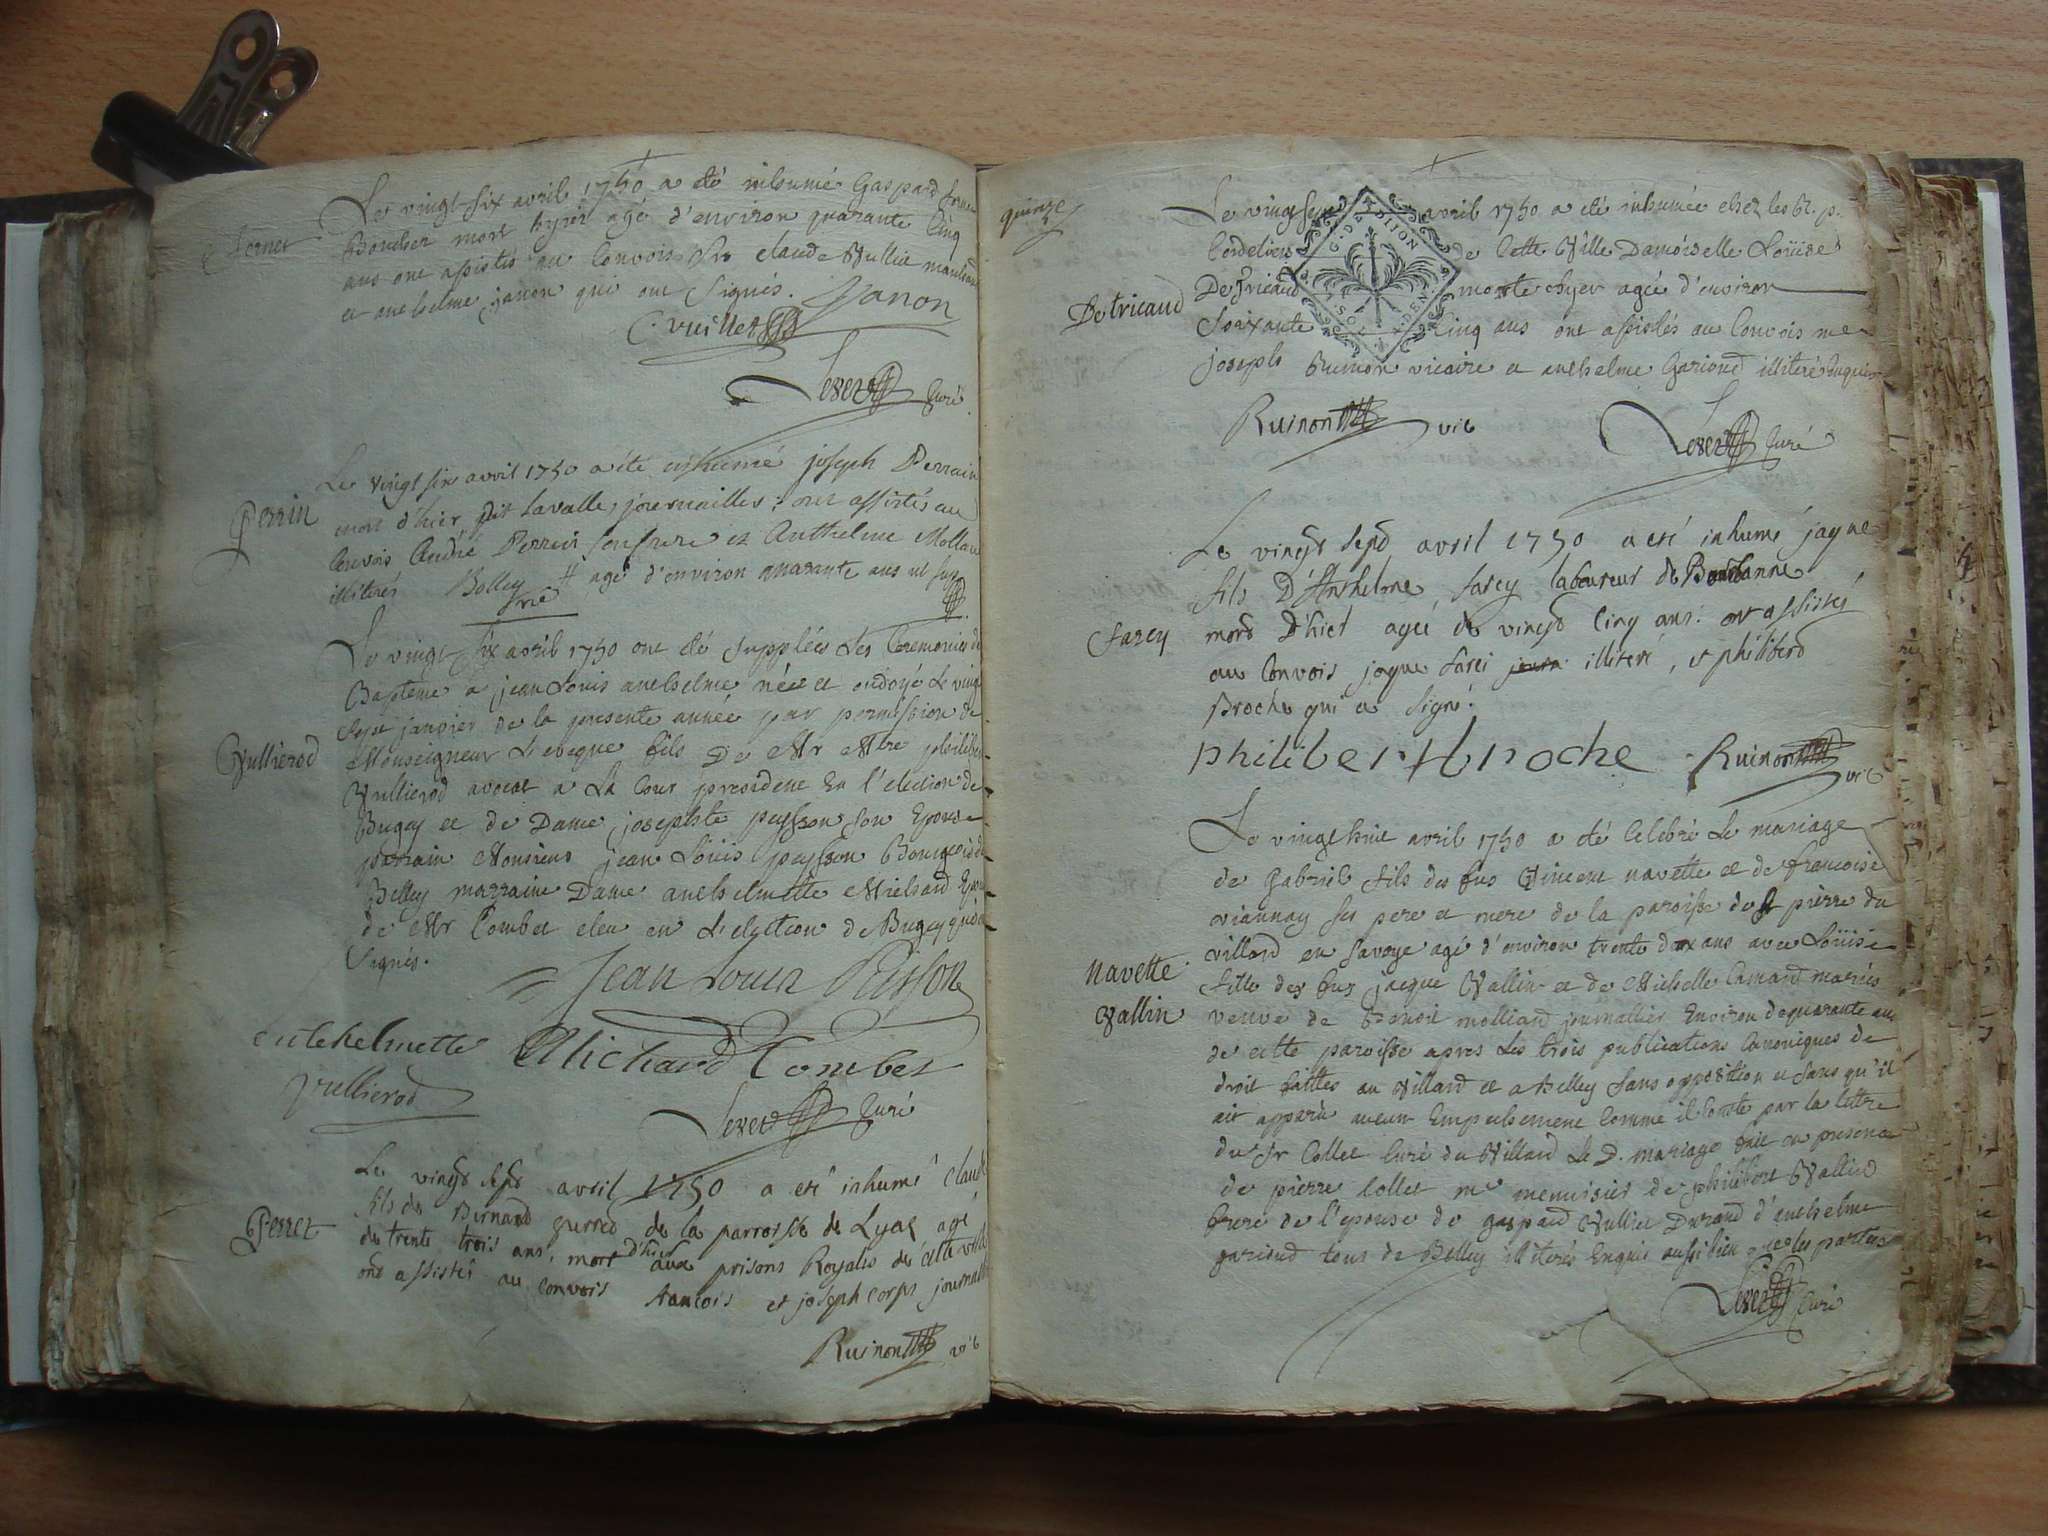 Le vingt six avril 1750 a été inhumé Gaspard
Fornet
Boucher mort hyer agé d'environ quarante cinq
ans ont assistés au Convois Claude Vullier
et anthelme janon qui ont signés. Janon
C. vuillet
Curé
Le vingt six avril 1750 a été inhumé joseph Perrain
Perrin
mort d'hier, dit Lavalle, journaillier; ont assistés au
Convois André Perrin son frere et Anthelme Mollard
illiterés Bolley # agé d'environ quarante ans
vic
Le vingt six avril 1750 ont été supplées Les Ceremonies du
Baptême a jean Louis anthelme née et ondoyé Le vingt
sept janvier de la presente année par permission de
Monseigneur L'evêque fils De Mr Mtre philibert
Vullierod
Vullierod avocat a La Cour president En l'election de
Bugey et de Dame josephte peysson son Epouse
parrain Monsieur jean Loüis peysson Bourgeois de
Belley marraine Dame anthelmette Michard Epouse
de Mr Combet eleu en L'election de Bugey qui ont
signés.
Jean Louis Peisson
anthelmette Michard Combet
Vullierod
Curé
Le vingt sept avril 1750 a eté inhumé Claude
fils de Bernard perret de la parroisse de
agé
Perret
de trente trois ans, mort d'hier aux prisons Royales de cette ville
ont assistés au convois francois et joseph corps
Ruinon vic
quinze
Le vingt sept avril 1750 a été inhumée chez les RR. pp.
G. D. DIJON
Cordeliers de Cette Ville Damoiselle Loüise
De tricaud
De Tricaud morte hyer agée d'environ
soixante Cinq ans ont assistés au Convois me
joseph Ruinon vicaire et anthelme Gariond illiteré Enquis
Ruinon vic
Curé
Le vingt sept avril 1750 a eté inhumé jaque
fils D'Anthelme Sarcy laboureur de
Sarcy
mort D'hier agé de vingt Cinq ans: ont assistés
au Convois jaque Sarci illiteré, et philiberd
Broche qui a signé.
Philibert Broche Ruinon vic
Le vingt huit avril 1750 a été Celebré Le mariage
de Gabriel fils des fus Vincent navette et de francoise
viannay ses pere et mere de la paroisse de St pierre du
villard en Savoye agé d'environ trente deux ans avec Loüise
Navette
fille des fus jacque Vallin et de Michelle Camand mariés
Vallin
veuve de Benoit molliand journallier Environ de quarante ans
de cette paroisse apres Les trois publications Canoniques de
droit faittes au Villard et a Belley sans opposition et sans qu'il
ait apparu aucun Empechement Comme il Conste par la lettre
du Sr Collet Curé du Villard Le D. mariage fait en presence
de pierre Collet me menuisier de philibert Vallin
frere de l'epouse de gaspard Vulliet Durand d'anthelme
gariond tous de Belley illiterés Enquis aussi bien que les parties
Curé